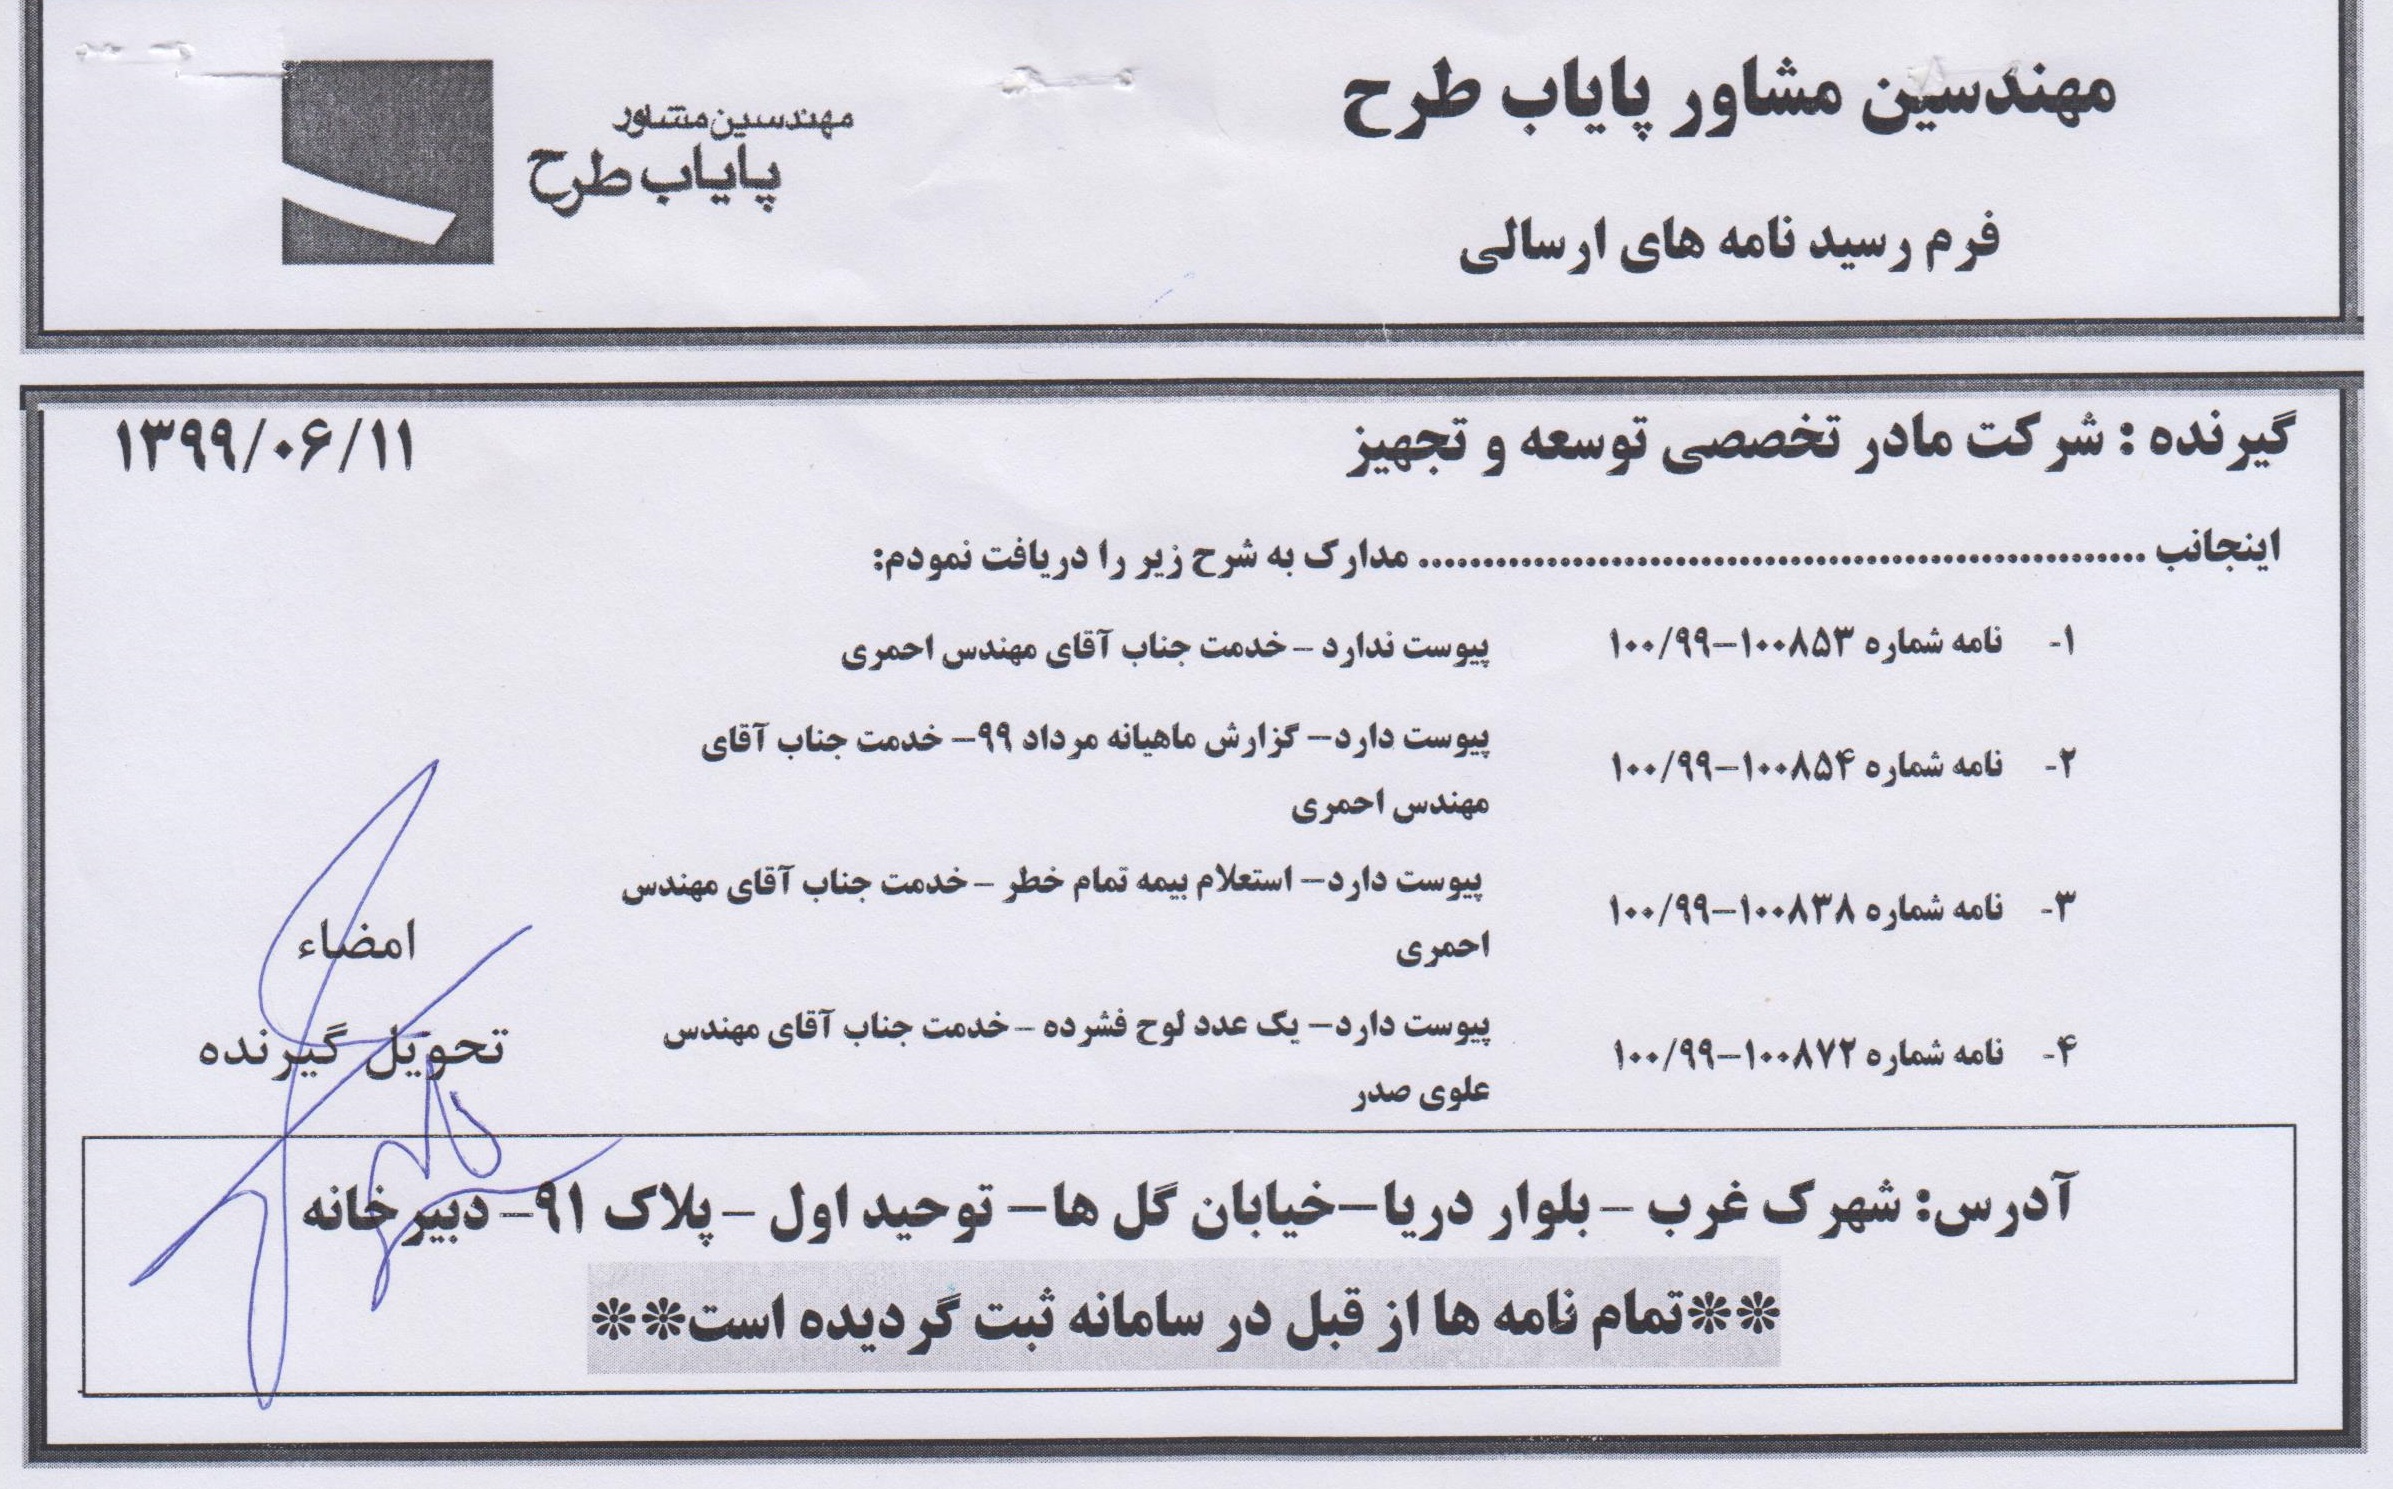 مهندسین مشاور پایاب طرح
مهندسین مشاور
پایاب طرح
فرم رسید نامه های ارسالی
گیرنده : شرکت مادر تخصصی توسعه و تجهیز
۱۳۹۹/۰۶/۱۱
اینجانب ........................................................ مدارک به شرح زیر را دریافت نمودم:
۱- نامه شماره ۱۰۰۸۵۳–۱۰۰/۹۹ پیوست ندارد – خدمت جناب آقای مهندس احمری
۲- نامه شماره ۱۰۰۸۵۴–۱۰۰/۹۹ پیوست دارد– گزارش ماهیانه مرداد ۹۹– خدمت جناب آقای
مهندس احمری
۳- نامه شماره ۱۰۰۸۳۸–۱۰۰/۹۹ پیوست دارد– استعلام بیمه تمام خطر – خدمت جناب آقای مهندس
احمری
۴- نامه شماره ۱۰۰۸۷۲–۱۰۰/۹۹ پیوست دارد– یک عدد لوح فشرده – خدمت جناب آقای مهندس
علوی صدر
امضاء
تحویل گیرنده
آدرس: شهرک غرب – بلوار دریا–خیابان گل ها– توحید اول – پلاک ۹۱– دبیرخانه
**تمام نامه ها از قبل در سامانه ثبت گردیده است**